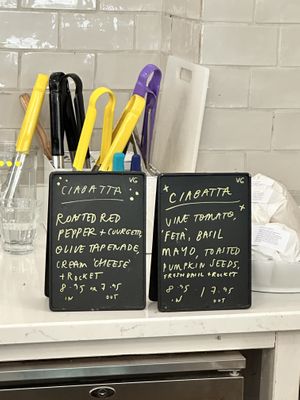 VG
CIABATTA
ROASTED RED
PEPPER + COURGETTE,
OLIVE TAPENADE,
CREAM 'CHEESE'
+ ROCKET
8.95 or 7.95
IN OUT
VG
CIABATTA
VINE TOMATO,
'FETA', BASIL
MAYO, TOASTED
PUMPKIN SEEDS,
FRESH BASIL + ROCKET
8.95 / 7.95
IN OUT